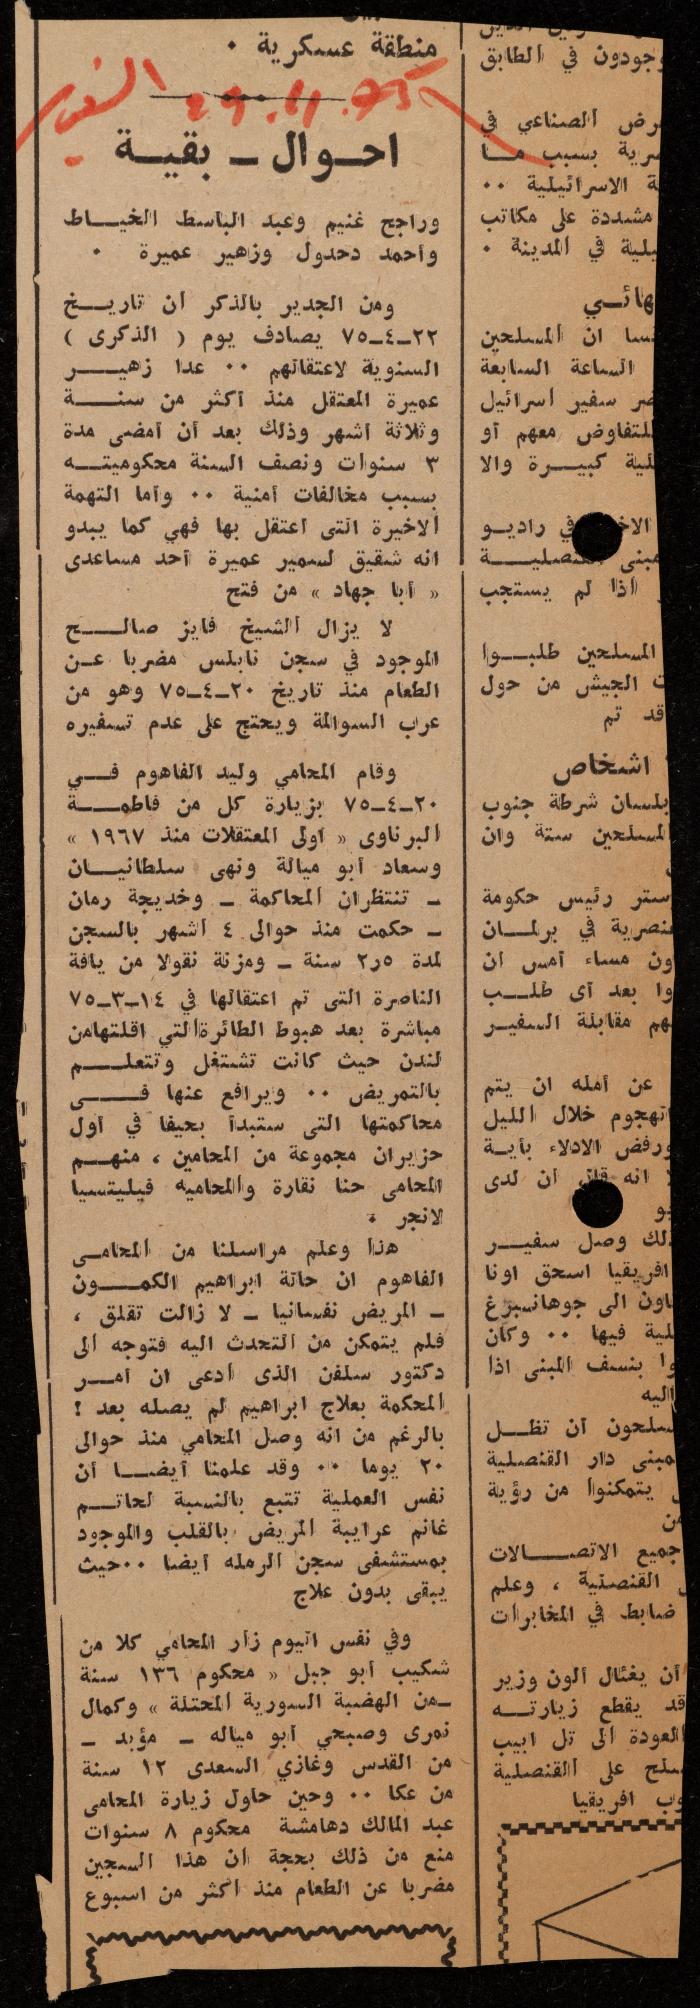 منطقة عسكرية .
الفجر 29.11.75
احوال ــ بقية
وراجح غنيم وعبد الباسط الخياط
وأحمد دحدول وزهير عميرة .
ومن الجدير بالذكر أن تاريخ
٢٢ــ٤ــ٧٥ يصادف يوم ( الذكرى )
السنوية لاعتقالهم ٠٠ عدا زهير
عميرة المعتقل منذ أكثر من سنة
وثلاثة أشهر وذلك بعد أن أمضى مدة
٣ سنوات ونصف السنة محكوميته
بسبب مخالفات أمنية ٠٠ وأما التهمة
الاخيرة التى اعتقل بها فهي كما يبدو
انه شقيق لسمير عميرة أحد مساعدى
« أبا جهاد » من فتح
لا يزال الشيخ فايز صالح
الموجود في سجن نابلس مضربا عن
الطعام منذ تاريخ ٢٠ــ٤ــ٧٥ وهو من
عرب السوالمة ويحتج على عدم تسفيره
وقام المحامي وليد الفاهوم في
٢٠ــ٤ــ٧٥ بزيارة كل من فاطمة
البرناوى « أولى المعتقلات منذ ١٩٦٧ »
وسعاد أبو ميالة ونهى سلطانيان
ــ تنتظران المحاكمة ــ وخديجة رمان
ــ حكمت منذ حوالى ٤ أشهر بالسجن
لمدة ٢ر٥ سنة ــ ومزنة نقولا من يافة
الناصرة التى تم اعتقالها في ١٤ــ٣ــ٧٥
مباشرة بعد هبوط الطائرة التي اقلتها من
لندن حيث كانت تشتغل وتتعلم
بالتمريض ٠٠ ويرافع عنها فى
محاكمتها التى ستبدأ بحيفا في أول
حزيران مجموعة من المحامين ، منهم
المحامى حنا نقارة والمحاميه فيليتسيا
لانجر .
هذا وعلم مراسلنا من المحامى
الفاهوم ان حالة ابراهيم الكمون
ــ المريض نفسانيا ــ لا زالت تقلق ،
فلم يتمكن من التحدث اليه فتوجه الى
دكتور سلفن الذى ادعى ان أمر
المحكمة بعلاج ابراهيم لم يصله بعد !
بالرغم من انه وصل المحامي منذ حوالى
٢٠ يوما ٠٠ وقد علمنا أيضا أن
نفس العملية تتبع بالنسبة لحاتم
غانم عرايبة المريض بالقلب والموجود
بمستشفى سجن الرمله أيضا ٠٠ حيث
يبقى بدون علاج
وفي نفس اليوم زار المحامي كلا من
شكيب أبو جبل « محكوم ١٣٦ سنة
ــ من الهضبة السورية المحتلة » وكمال
نمرى وصبحي أبو مياله ــ مؤبد ــ
من القدس وغازي السعدى ١٢ سنة
من عكا ٠٠ وحين حاول زيارة المحامى
عبد المالك دهامشة محكوم ٨ سنوات
منع من ذلك بحجة أن هذا السجين
مضربا عن الطعام منذ أكثر من اسبوع
وجودون في الطابق
رض الصناعي في
رية بسبب ما
ة الاسرائيلية ٠٠
مشددة على مكاتب
يلية في المدينة .
هائي
نسا ان المسلحين
الساعة السابعة
ضر سفير اسرائيل
للتفاوض معهم أو
لية كبيرة والا
في راديو
مبنى القنصلية
اذا لم يستجب
المسلحين طلبوا
ت الجيش من حول
قد تم
اشخاص
بلسان شرطة جنوب
لمسلحين ستة وان
ستر رئيس حكومة
نصرية في برلمان
ون مساء أمس أن
وا بعد أى طلب
هم مقابلة السفير
عن أمله ان يتم
لهجوم خلال الليل
ورفض الادلاء بأية
انه قال أن لدى
يو
لك وصل سفير
افريقيا اسحق اونا
اون الى جوهانسبرغ
لية فيها ٠٠ وكان
وا بنسف المبنى اذا
اليه
سلحون أن تظل
مبنى دار القنصلية
يتمكنوا من رؤية
من
جميع الاتصالات
القنصلية ، وعلم
ضابط في المخابرات
أن يغئال ألون وزير
قد يقطع زيارته
العودة الى تل ابيب
سلح على القنصلية
وب افريقيا